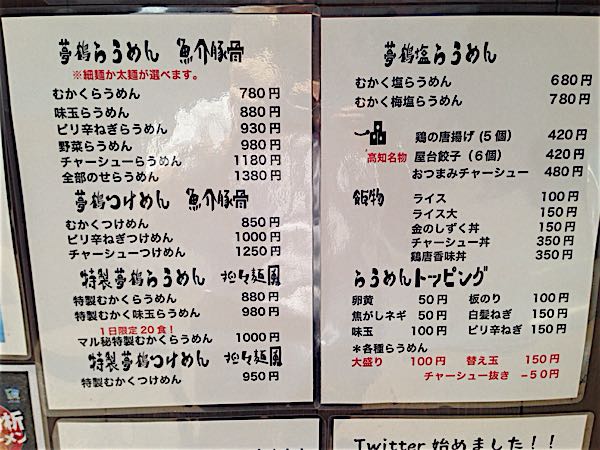 夢鶴らうめん 魚介豚骨
※細麺か太麺が選べます。
むかくらうめん 780円
味玉らうめん 880円
ピリ辛ねぎらうめん 930円
野菜らうめん 980円
チャーシューらうめん 1180円
全部のせらうめん 1380円
夢鶴つけめん 魚介豚骨
むかくつけめん 850円
ピリ辛ねぎつけめん 1000円
チャーシューつけめん 1250円
特製夢鶴らうめん 担々麺風
特製むかくらうめん 880円
特製むかく味玉らうめん 980円
1日限定20食!
マル秘特製むかくらうめん 1000円
特製夢鶴つけめん 担々麺風
特製むかくつけめん 950円
夢鶴塩らうめん
むかく塩らうめん 680円
むかく梅塩らうめん 780円
一品
鶏の唐揚げ(5個) 420円
高知名物 屋台餃子(6個) 420円
おつまみチャーシュー 480円
飯物
ライス 100円
ライス大 150円
金のしずく丼 150円
チャーシュー丼 350円
鶏唐香味丼 350円
らうめんトッピング
卵黄 50円 板のり 100円
焦がしネギ 50円 白髪ねぎ 150円
味玉 100円 ピリ辛ねぎ 150円
*各種らうめん
大盛り 100円 替え玉 150円
チャーシュー抜き -50円
Twitter 始めました!!